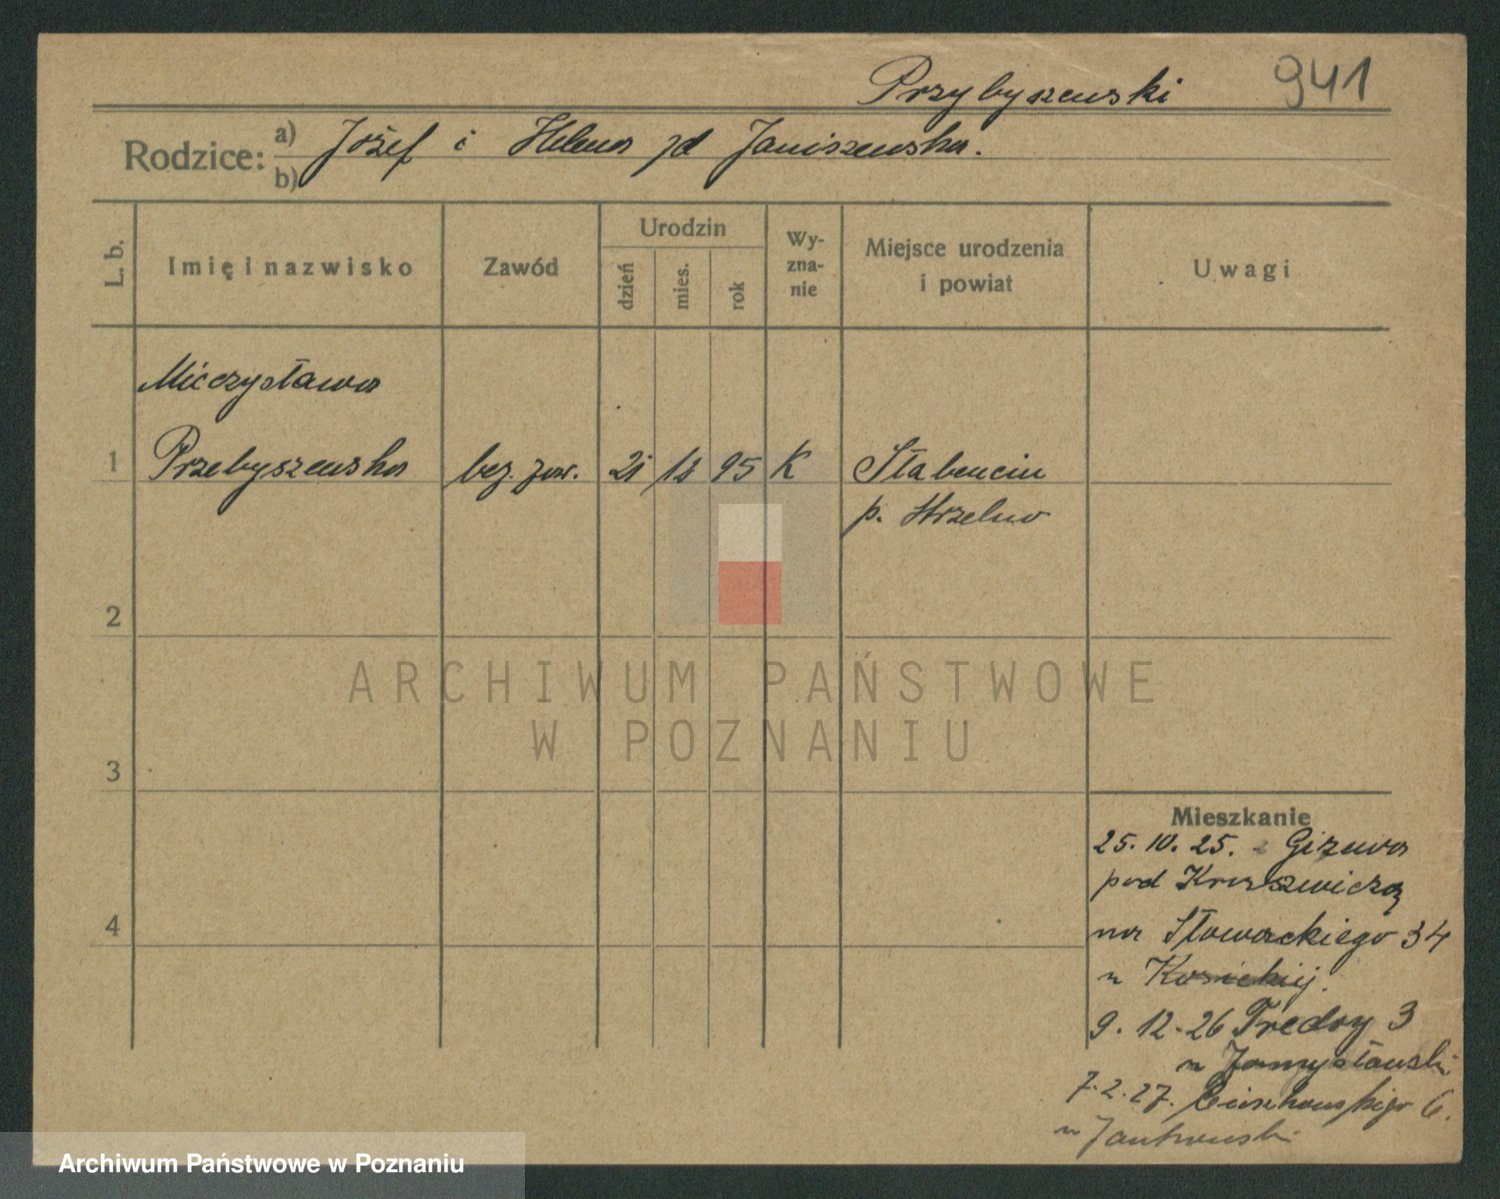 Przybyszewski 941
Rodzice: a) Józef i Helena zd Janiszewska.
b)
L. b.
Imię i nazwisko
Zawód
Urodzin
dzień
mies.
rok
Wy-
zna-
nie
Miejsce urodzenia
i powiat
Uwagi
Mieczysława
1 Przebyszewska bez. zaw. 21 12 95 K Stabencin
p. Strzelno
2
ARCHIWUM PAŃSTWOWE
W POZNANIU
3
Mieszkanie
25. 10. 25. z Gizewa
pod Kruszwiczą
4
na Słowackiego 34
u
9. 12. 26 Fredry 3
u
7. 2. 27. 6.
u Jankowski
Archiwum Państwowe w Poznaniu